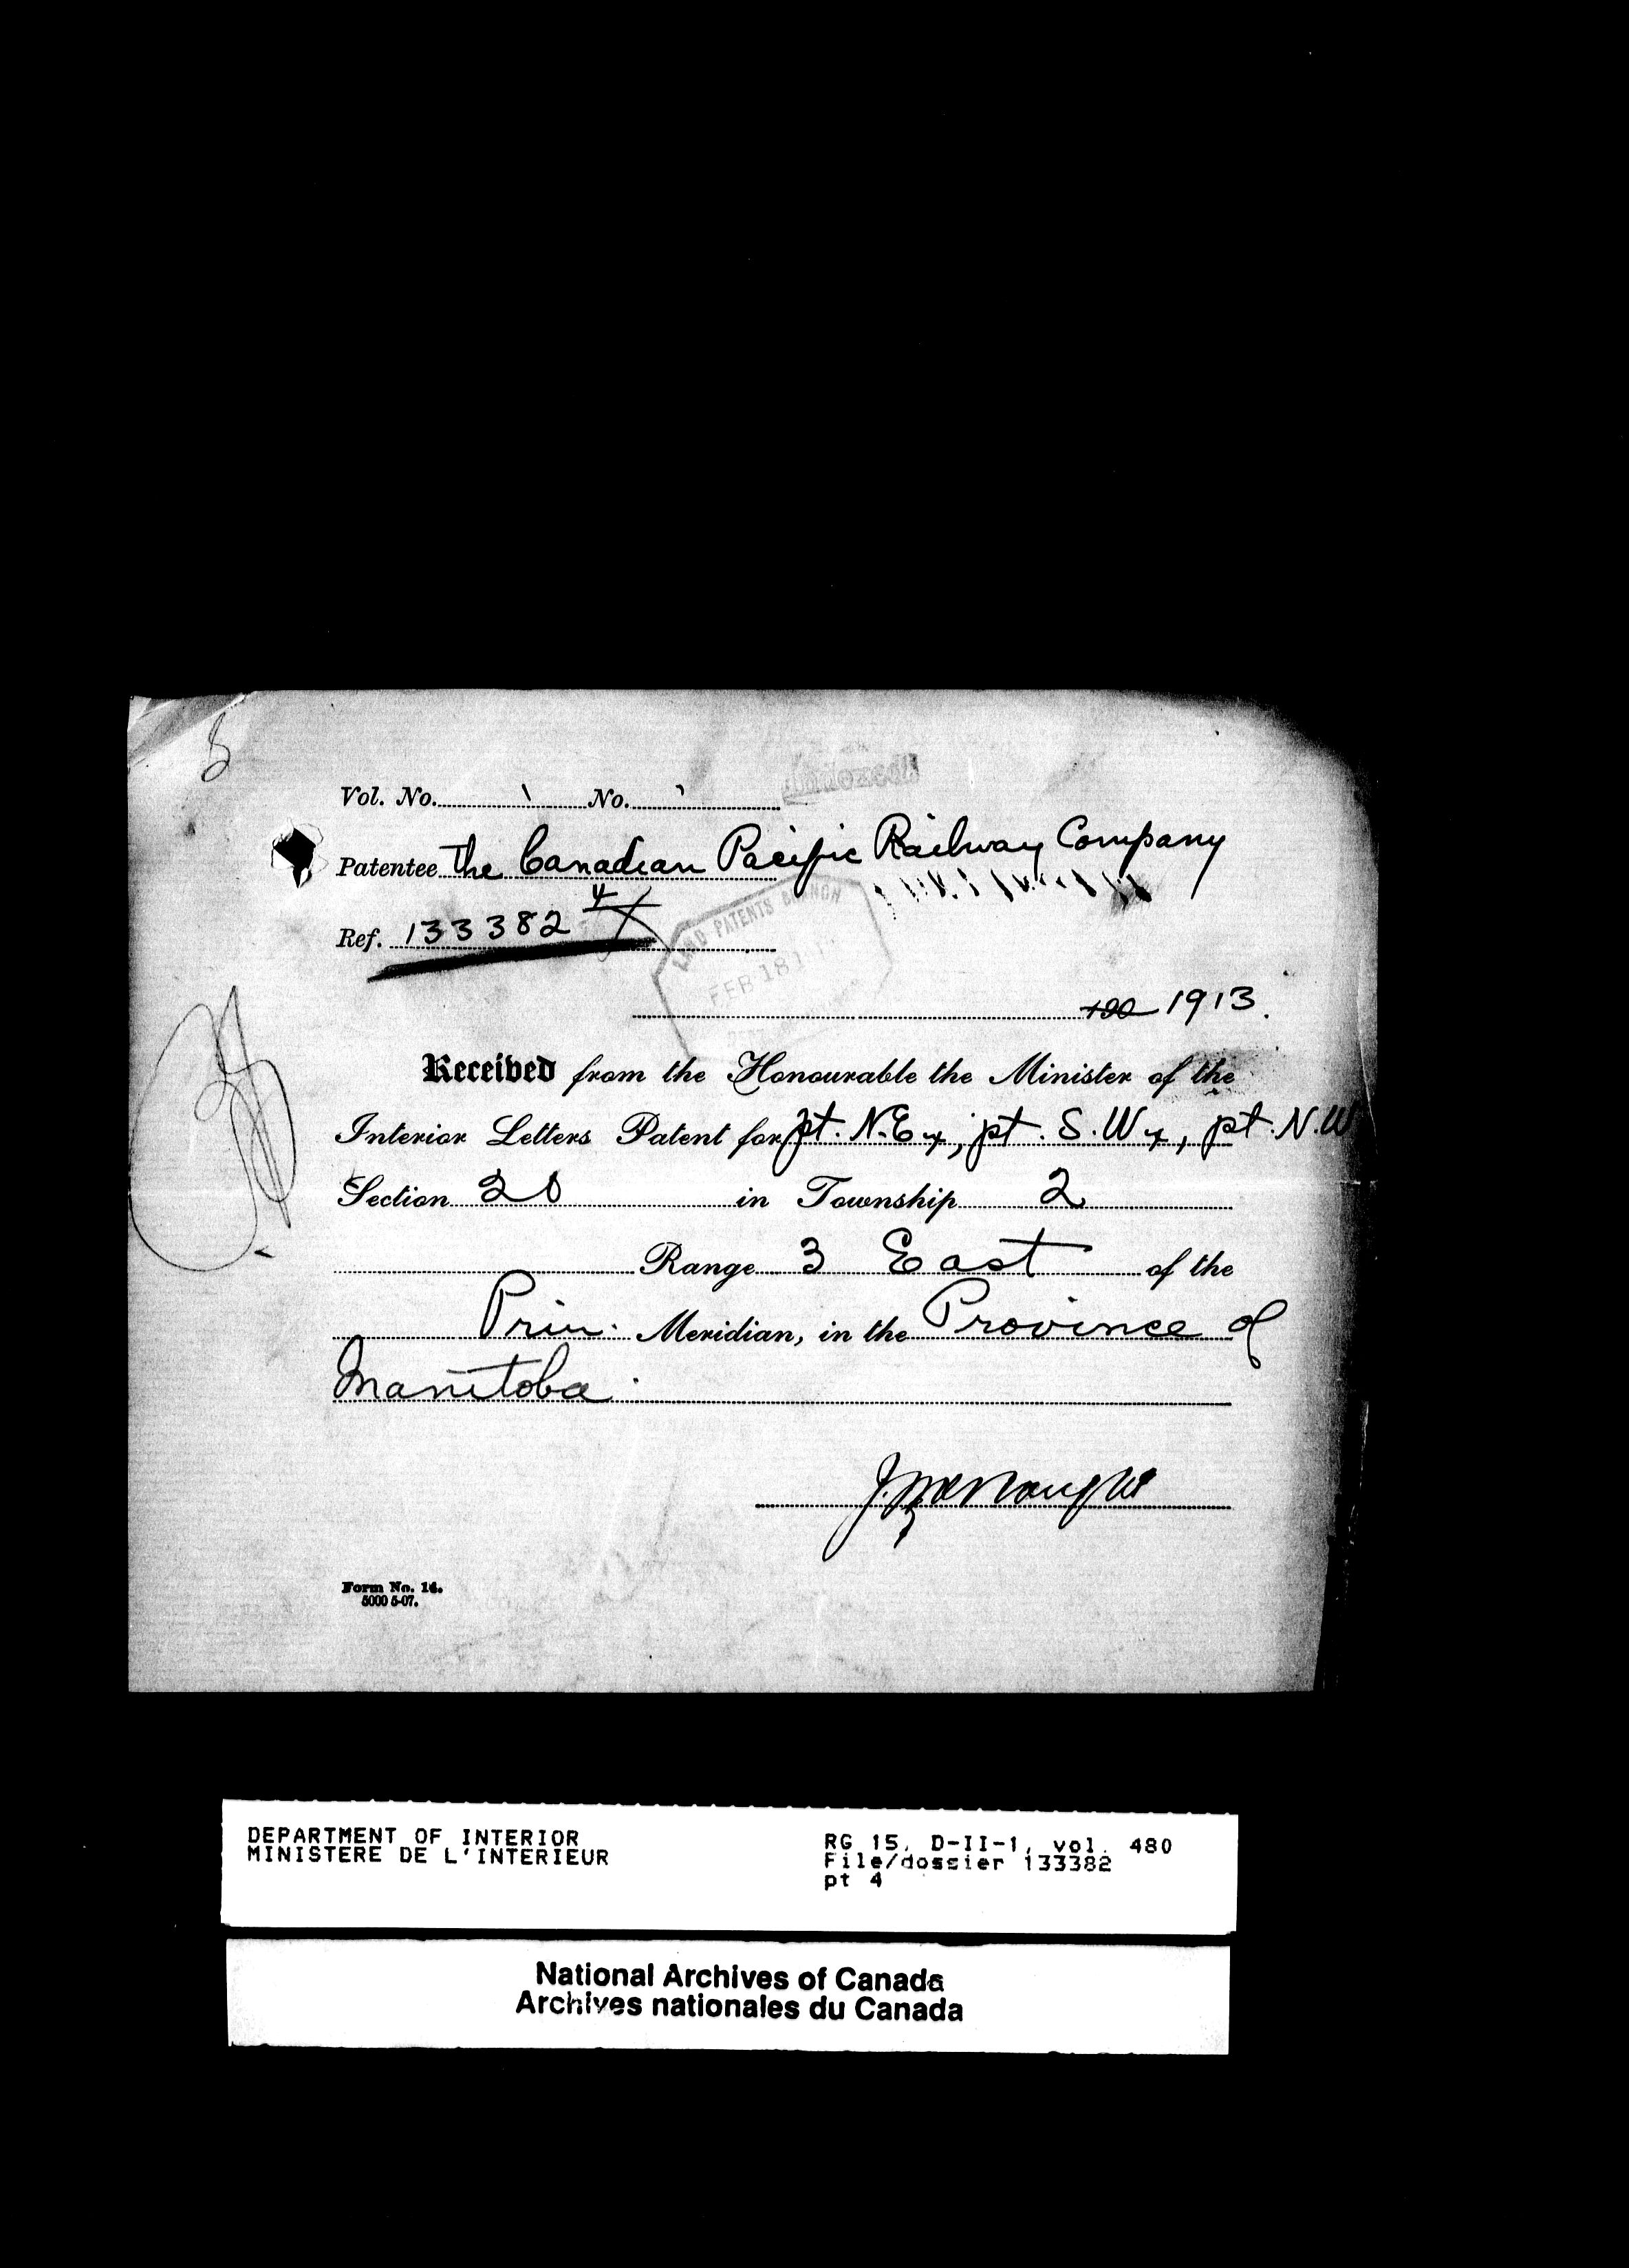 Indexed
Vol. No. No.
Patentee The Canadian Pacific Railway Company
Ref. 133382 4
LAND PATENTS BRANCH
FEB 18
190 1913.
Received from the Honourable the Minister of the
Interior Letters Patent for pt. N.E 4, pt. S.W 4, pt. N.W
Section 20 in Township 2
Range 3 East of the
Prin. Meridian, in the Province of
Manitoba.
Form No. 14.
5000 5-07.
DEPARTMENT OF INTERIOR
MINISTERE DE L'INTERIEUR
RG 15, D-II-1, vol. 480
File/dossier 133382
pt 4
National Archives of Canada
Archives nationales du Canada